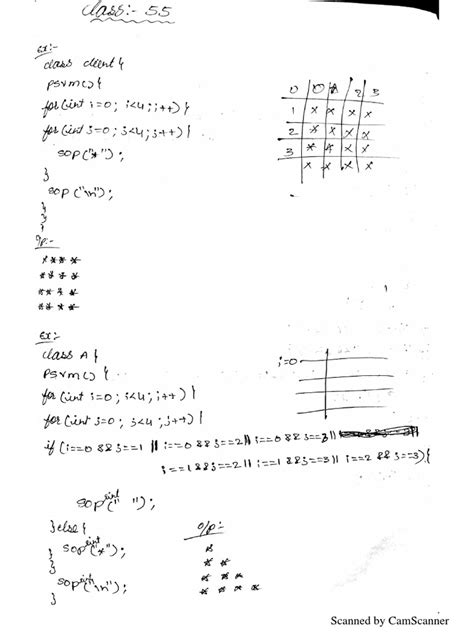 class:- 55
Ex:-
class client {
PSVM() {
for(int i=0; i<4; i++) {
for(int j=0; j<4; j++) {
SOP("*");
}
SOP("\n");
}
}
}
O/P:-
* * * *
* * * *
* * * *
* * * *
0 0 1 2 3
1 * * * *
2 * * * *
3 * * * *
* * * *
Ex:-
class A {
PSVM() {
for(int i=0; i<4; i++) {
for(int j=0; j<4; j++) {
if (i==0 && j==1 || i==0 && j==2 || i==0 && j==3 ||
i==1 && j==2 || i==1 && j==3 || i==2 && j==3) {
SOPint(" ");
} else {
SOPint("*");
}
}
SOPint("\n");
}
i=0
O/P:-
*
* *
* * *
* * * *
Scanned by CamScanner